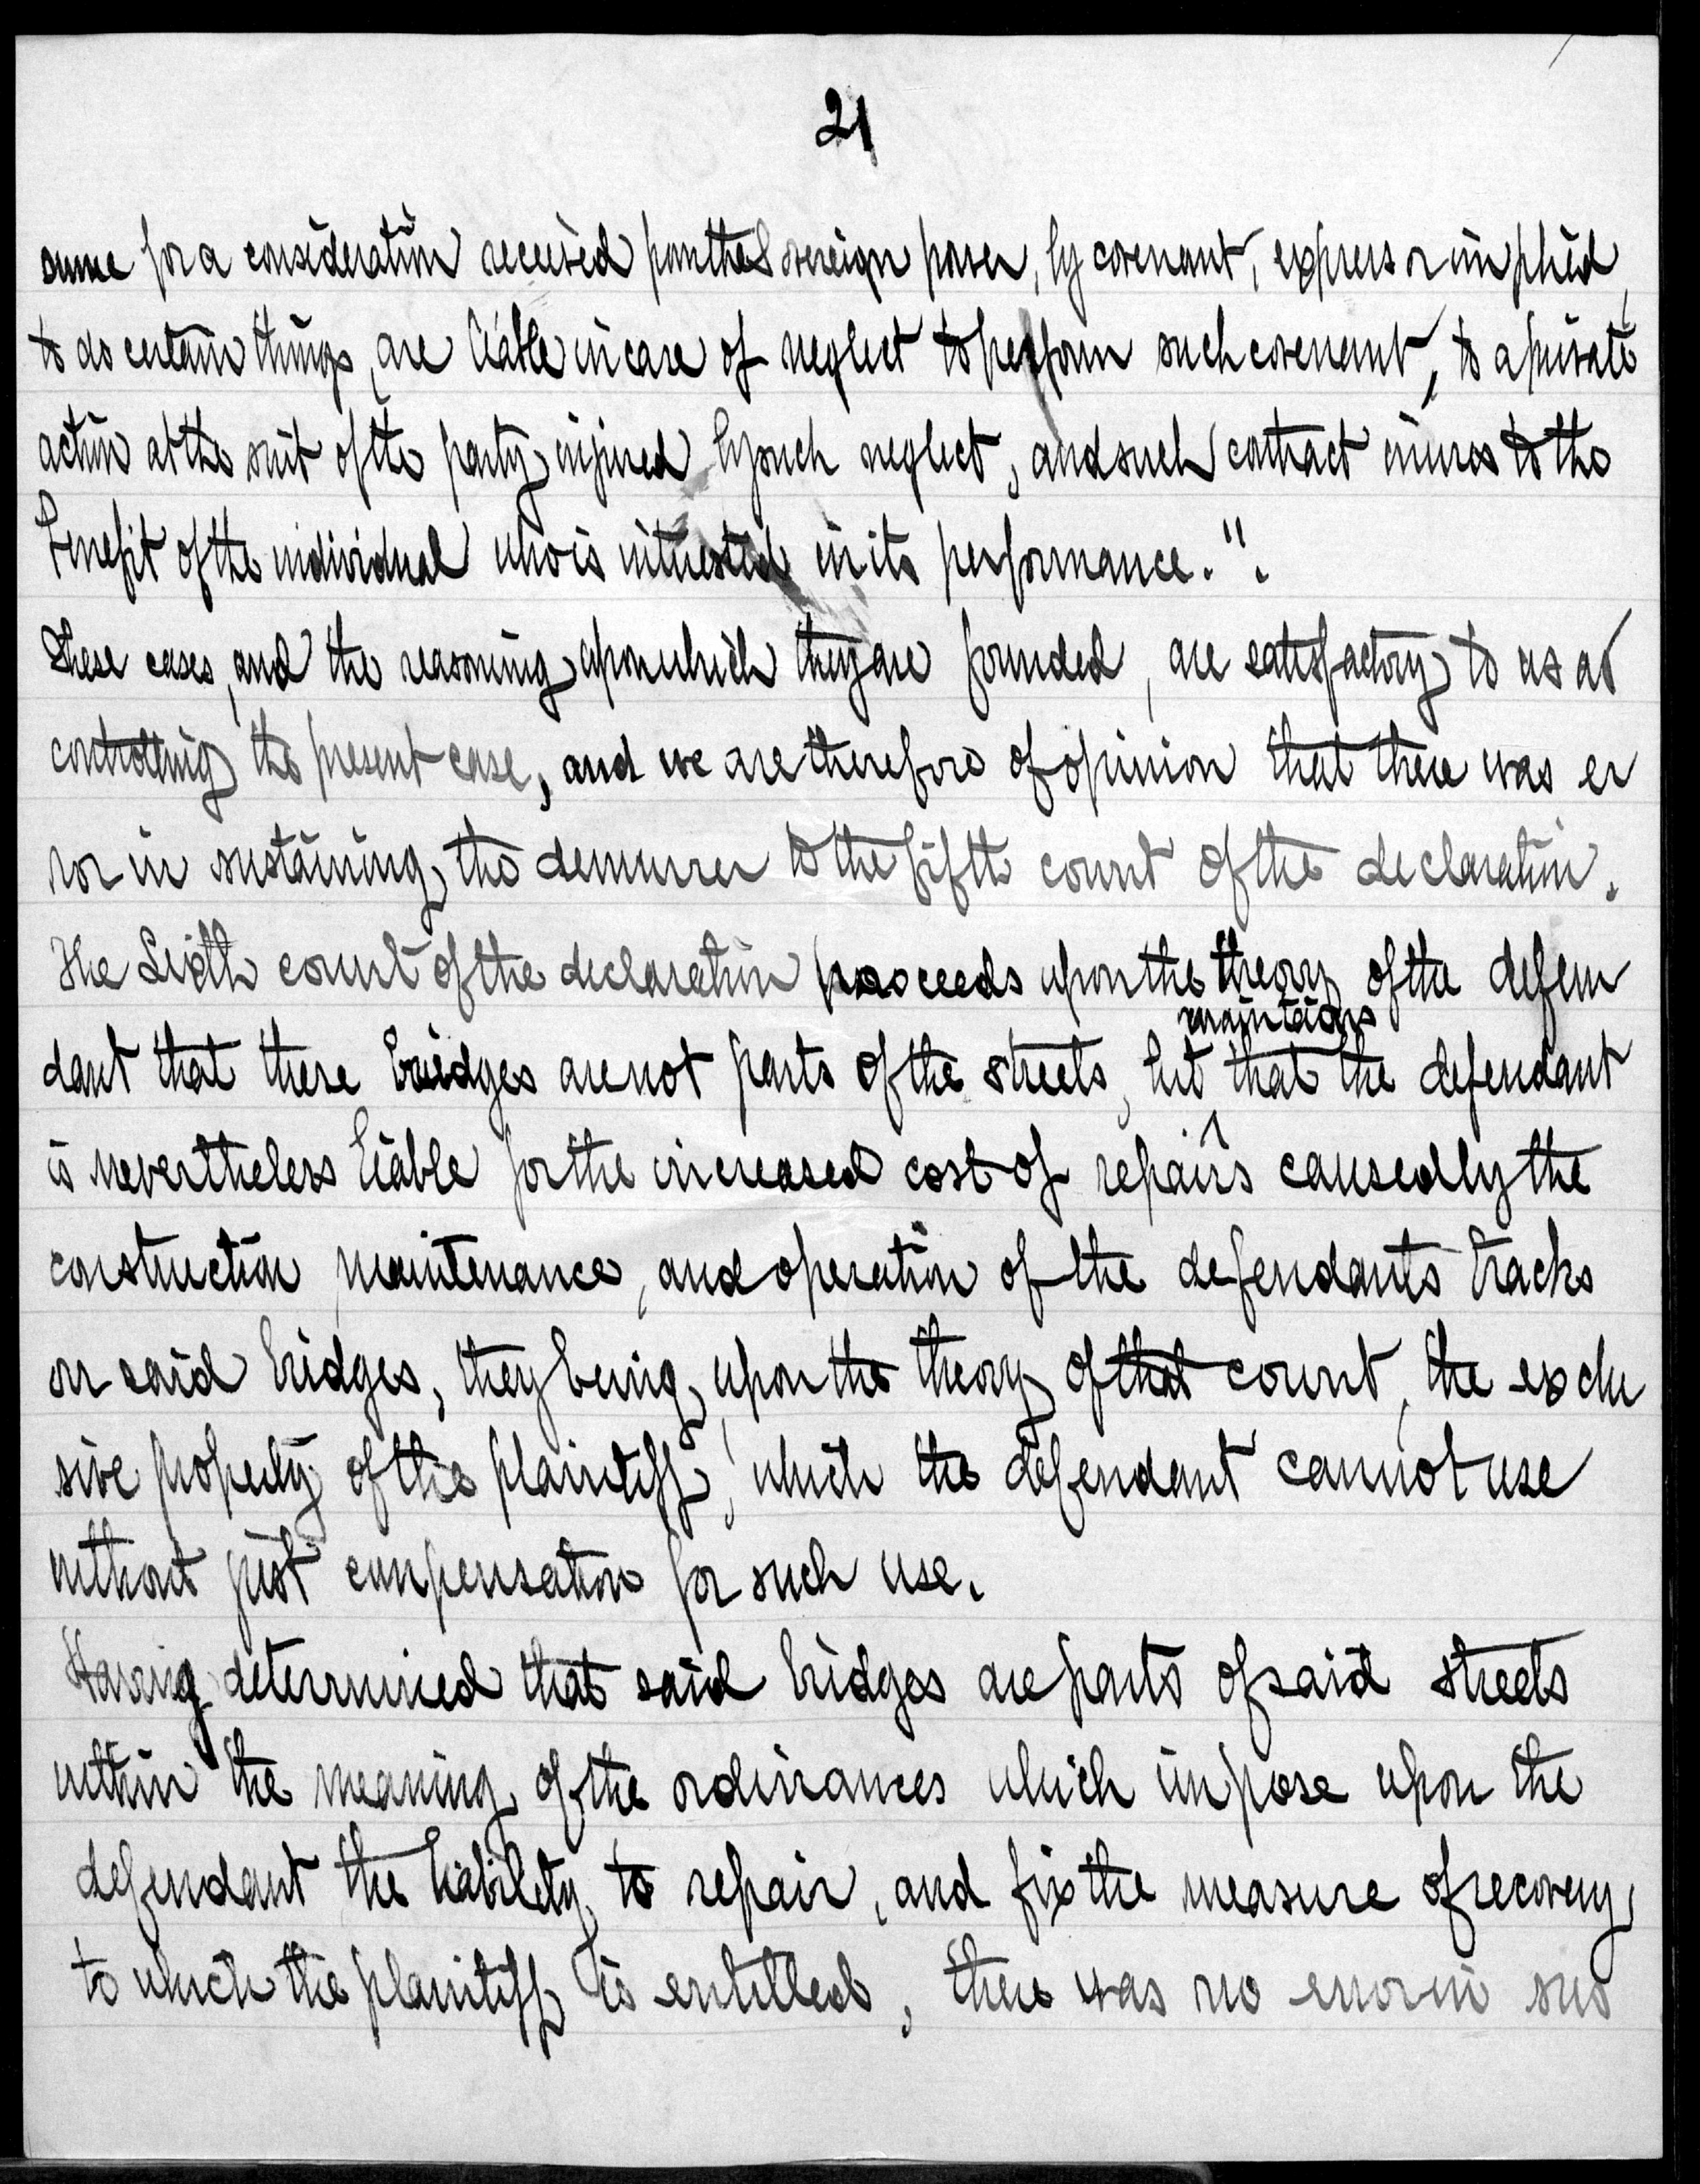 21
sume for a consideration received from the Sovereign power, by covenant, express or implied,
to do certain things, are liable in case of neglect to perform such covenant, to a private
action at the suit of the party injured by such neglect, and such contract inures to the
benefit of the individual who is interested in its performance.".
These cases, and the reasoning upon which they are founded, are satisfactory to us as
controlling the present case, and we are therefore of opinion that there was er
ror in sustaining the demurrer to the fifth count of the declaration.
The Sixth count of the declaration proceeds upon the theory of the defen
maintains
dant that these bridges are not parts of the streets, but that the defendant
is nevertheless liable for the increased cost of repairs caused by the
construction, maintenance, and operation of the defendants tracks
on said bridges, they being, upon the theory of that count, the exclu
sive property of the plaintiff, which the defendant cannot use
without just compensation for such use.
Having determined that said bridges are parts of said streets
within the meaning of the ordinances which impose upon the
defendant the liability to repair, and fix the measure of recovery
to which the plaintiff is entitled, there was no error in sus